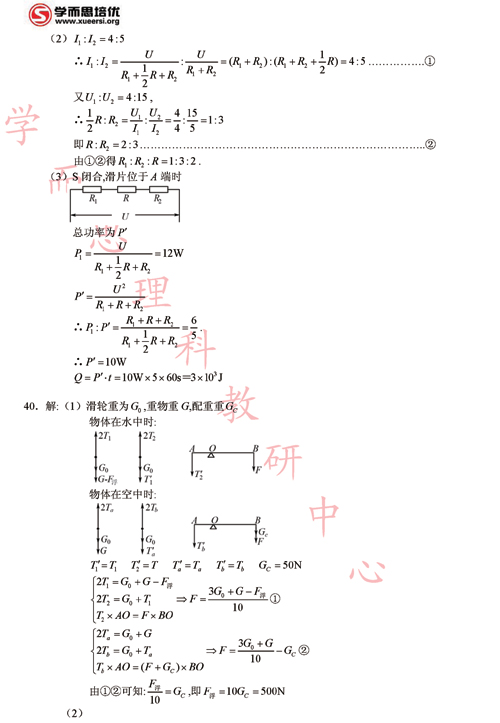 学而思培优
www.xueersi.org
(2) I₁ : I₂ = 4 : 5
∴ I₁ : I₂ = U/(R₁ + ½R + R₂) : U/(R₁ + R₂) = (R₁ + R₂) : (R₁ + R₂ + ½R) = 4 : 5 ……………①
又U₁ : U₂ = 4 : 15 ,
∴ ½R : R₂ = U₁/I₁ : U₂/I₂ = 4/4 : 15/5 = 1 : 3
即 R : R₂ = 2 : 3 ……………②
由①②得 R₁ : R₂ : R = 1 : 3 : 2 .
(3) S 闭合,滑片位于 A 端时
R₁ R R₂
U
总功率为 P′
P₁ = U/(R₁ + ½R + R₂) = 12W
P′ = U²/(R₁ + R + R₂)
∴ P₁ : P′ = (R₁ + R + R₂)/(R₁ + ½R + R₂) = 6/5 .
∴ P′ = 10W
Q = P′·t = 10W × 5 × 60s = 3 × 10³ J
40. 解: (1) 滑轮重为 G₀ ,重物重 G,配重重 G_C
物体在水中时:
2T₁ 2T₂
A O B
G₀ G₀
G-F浮 T′₁ T′₂ F
物体在空中时:
2Tₐ 2T_b
A O B
G₀ G₀ G_c
G T′ₐ T′_b F
T′₁ = T₁ T′₂ = T T′ₐ = Tₐ T′_b = T_b G_C = 50N
2T₁ = G₀ + G − F浮
2T₂ = G₀ + T₁ ⇒ F = (3G₀ + G − F浮)/10 ①
T₂ × AO = F × BO
2Tₐ = G₀ + G
2T_b = G₀ + Tₐ ⇒ F = (3G₀ + G)/10 − G_C ②
T_b × AO = (F + G_C) × BO
由①②可知: F浮/10 = G_C ,即 F浮 = 10G_C = 500N
(2)
学而思理科教研中心